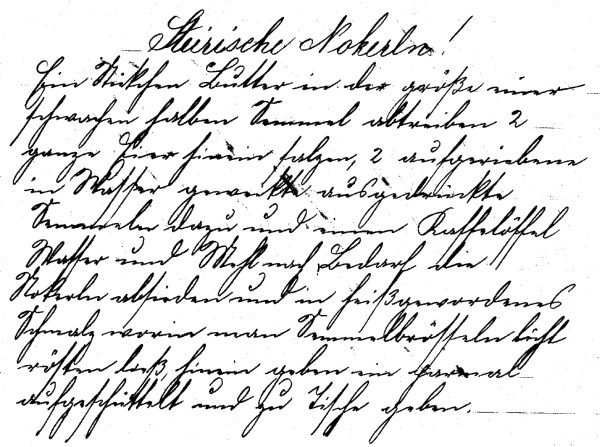 Steirische Nokerln!
Ein Stükchen Butter in der größe einer
schwachen halben Semmel abtreiben 2
ganze Eier hinein salzen, 2 aufgeriebene
in Wasser geweikte ausgedrückte
Semmeln dazu und einen Kaffelöffel
Wasser und Mehl nach Bedarf die
Nokerln absieden und in heißgewordenes
Schmalz worin man Semmelbrösseln licht
rösten ließ, hinein geben ein parmal
aufgeschüttelt und zu Tische geben.